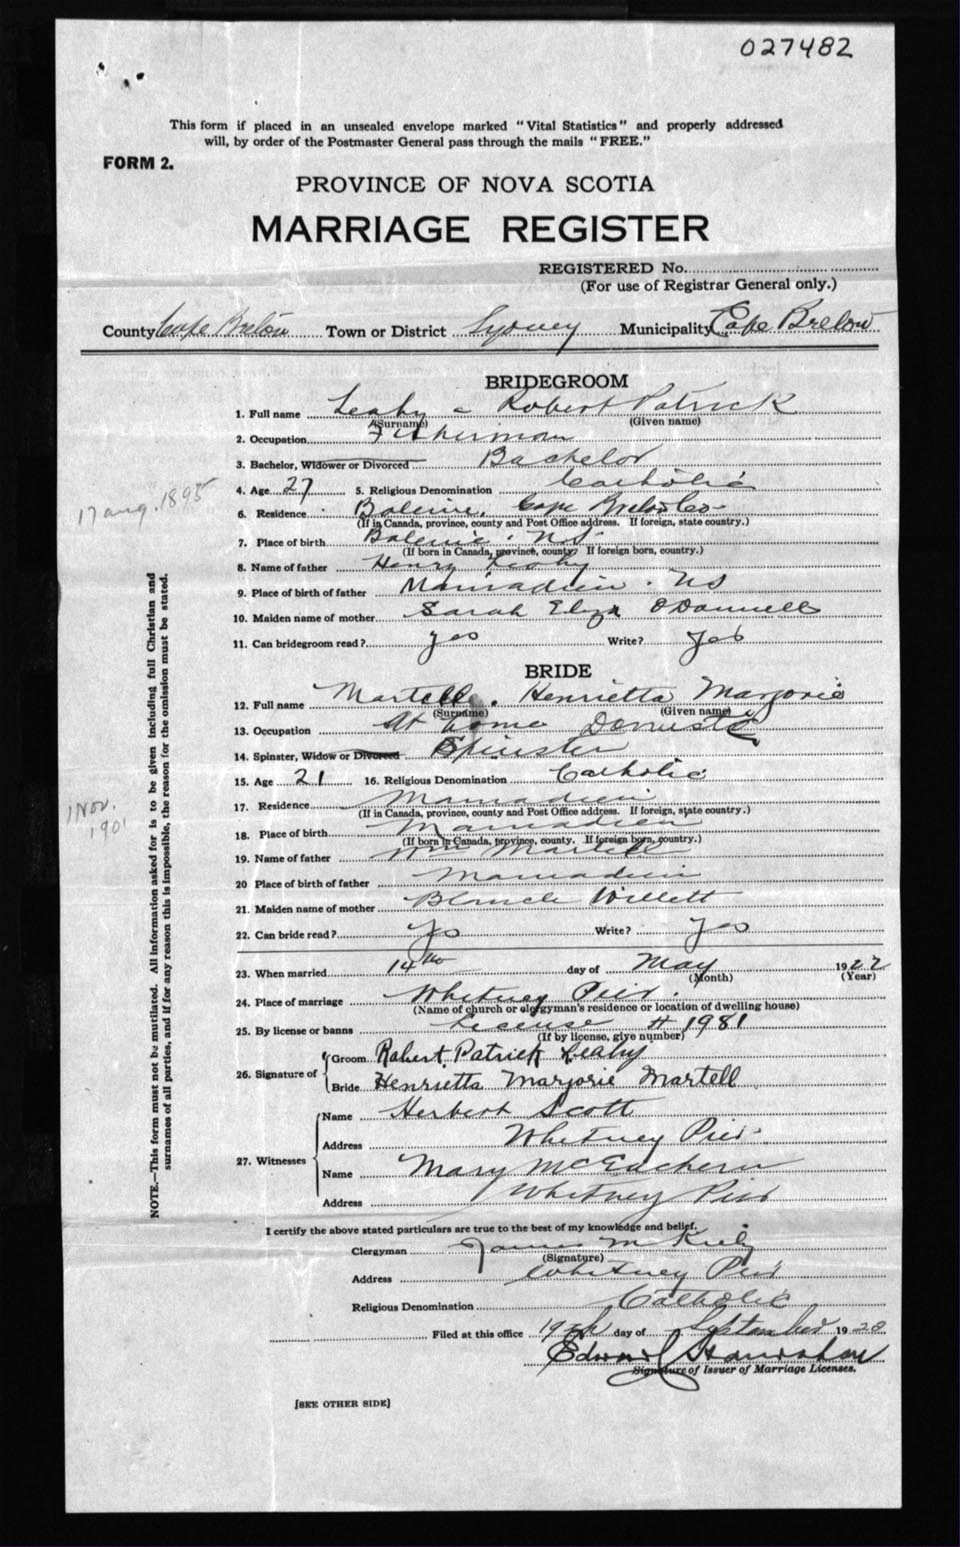 027482
This form if placed in an unsealed envelope marked "Vital Statistics" and properly addressed
will, by order of the Postmaster General pass through the mails "FREE."
FORM 2.
PROVINCE OF NOVA SCOTIA
MARRIAGE REGISTER
REGISTERED No.
(For use of Registrar General only.)
County Cape Breton Town or District Sydney Municipality Cape Breton
BRIDEGROOM
1. Full name Leahy - Robert Patrick
(Surname) (Given name)
2. Occupation Fisherman
3. Bachelor, Widower or Divorced Bachelor
4. Age 27 5. Religious Denomination Catholic
17 aug. 1895
6. Residence Baleine, Cape Breton Co
(If in Canada, province, county and Post Office address. If foreign, state country.)
7. Place of birth Baleine. N.S
(If born in Canada, province, county? If foreign born, country.)
8. Name of father Henry Leahy
9. Place of birth of father Mainadieu. NS
10. Maiden name of mother Sarah Eliza O'Donnell
11. Can bridegroom read? yes Write? yes
BRIDE
12. Full name Martell. Henrietta Marjorie
(Surname) (Given name)
13. Occupation At home Domestic
14. Spinster, Widow or Divorced Spinster
15. Age 21 16. Religious Denomination Catholic
1 Nov. 1901
17. Residence Mainadieu
(If in Canada, province, county and Post Office address. If foreign, state country.)
18. Place of birth Mainadieu
(If born in Canada, province, county. If foreign born, country.)
19. Name of father Wm Martell
20 Place of birth of father Mainadieu
21. Maiden name of mother Blanche Willett
22. Can bride read? Yes Write? Yes
23. When married 14th day of May 1922
(Month) (Year)
24. Place of marriage Whitney Pier.
(Name of church or clergyman's residence or location of dwelling house)
25. By license or banns License # 1981
(If by license, give number)
26. Signature of Groom Robert Patrick Leahy
Bride Henrietta Marjorie Martell
27. Witnesses Name Herbert Scott
Address Whitney Pier
Name Mary McEachern
Address Whitney Pier
I certify the above stated particulars are true to the best of my knowledge and belief.
Clergyman James M Kiely
(Signature)
Address Whitney Pier
Religious Denomination Catholic
Filed at this office 19th day of September 1928
Edward
Signature of Issuer of Marriage Licenses.
[SEE OTHER SIDE]
NOTE.—This form must not be mutilated. All information asked for is to be given including full Christian and
surnames of all parties, and if for any reason this is impossible, the reason for the omission must be stated.